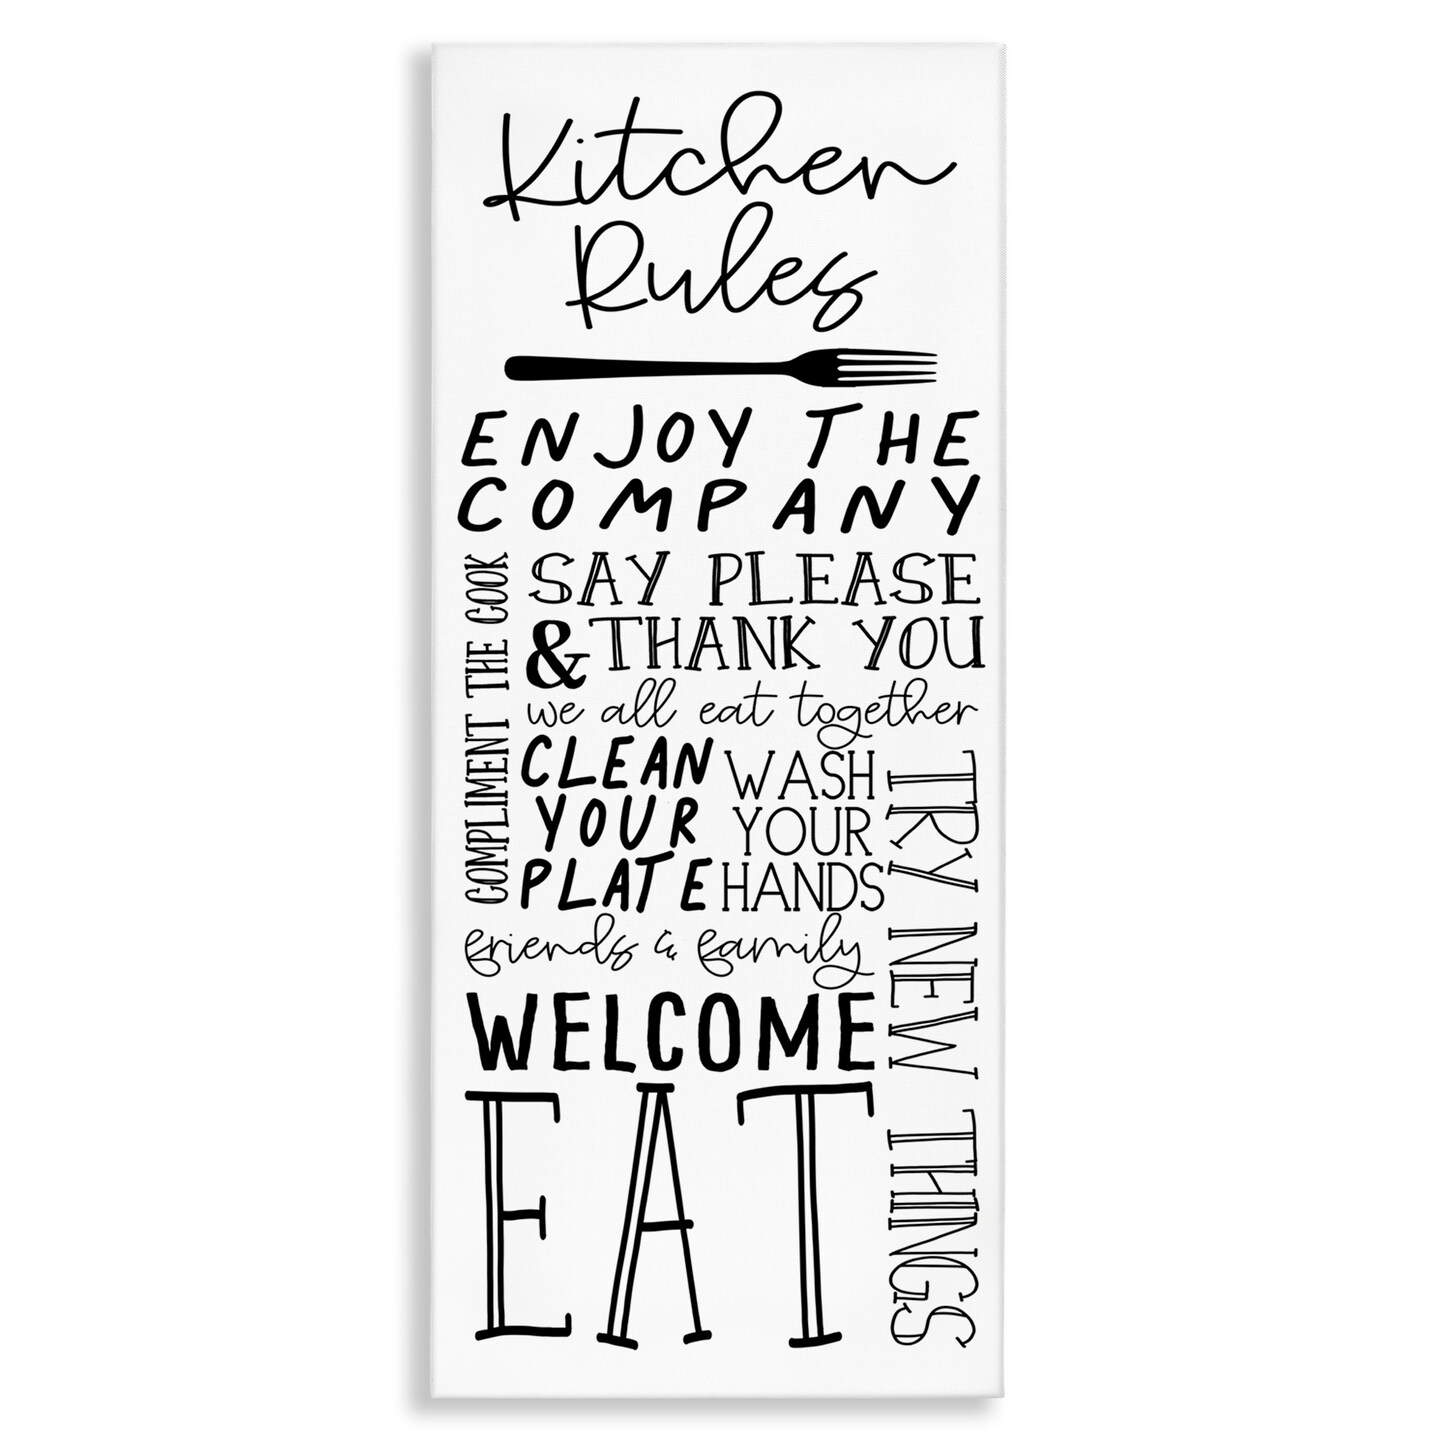 Kitchen
Rules
ENJOY THE
COMPANY
COMPLIMENT THE COOK
SAY PLEASE
& THANK YOU
we all eat together
CLEAN
YOUR
PLATE
WASH
YOUR
HANDS
TRY NEW THINGS
friends & family
WELCOME
EAT